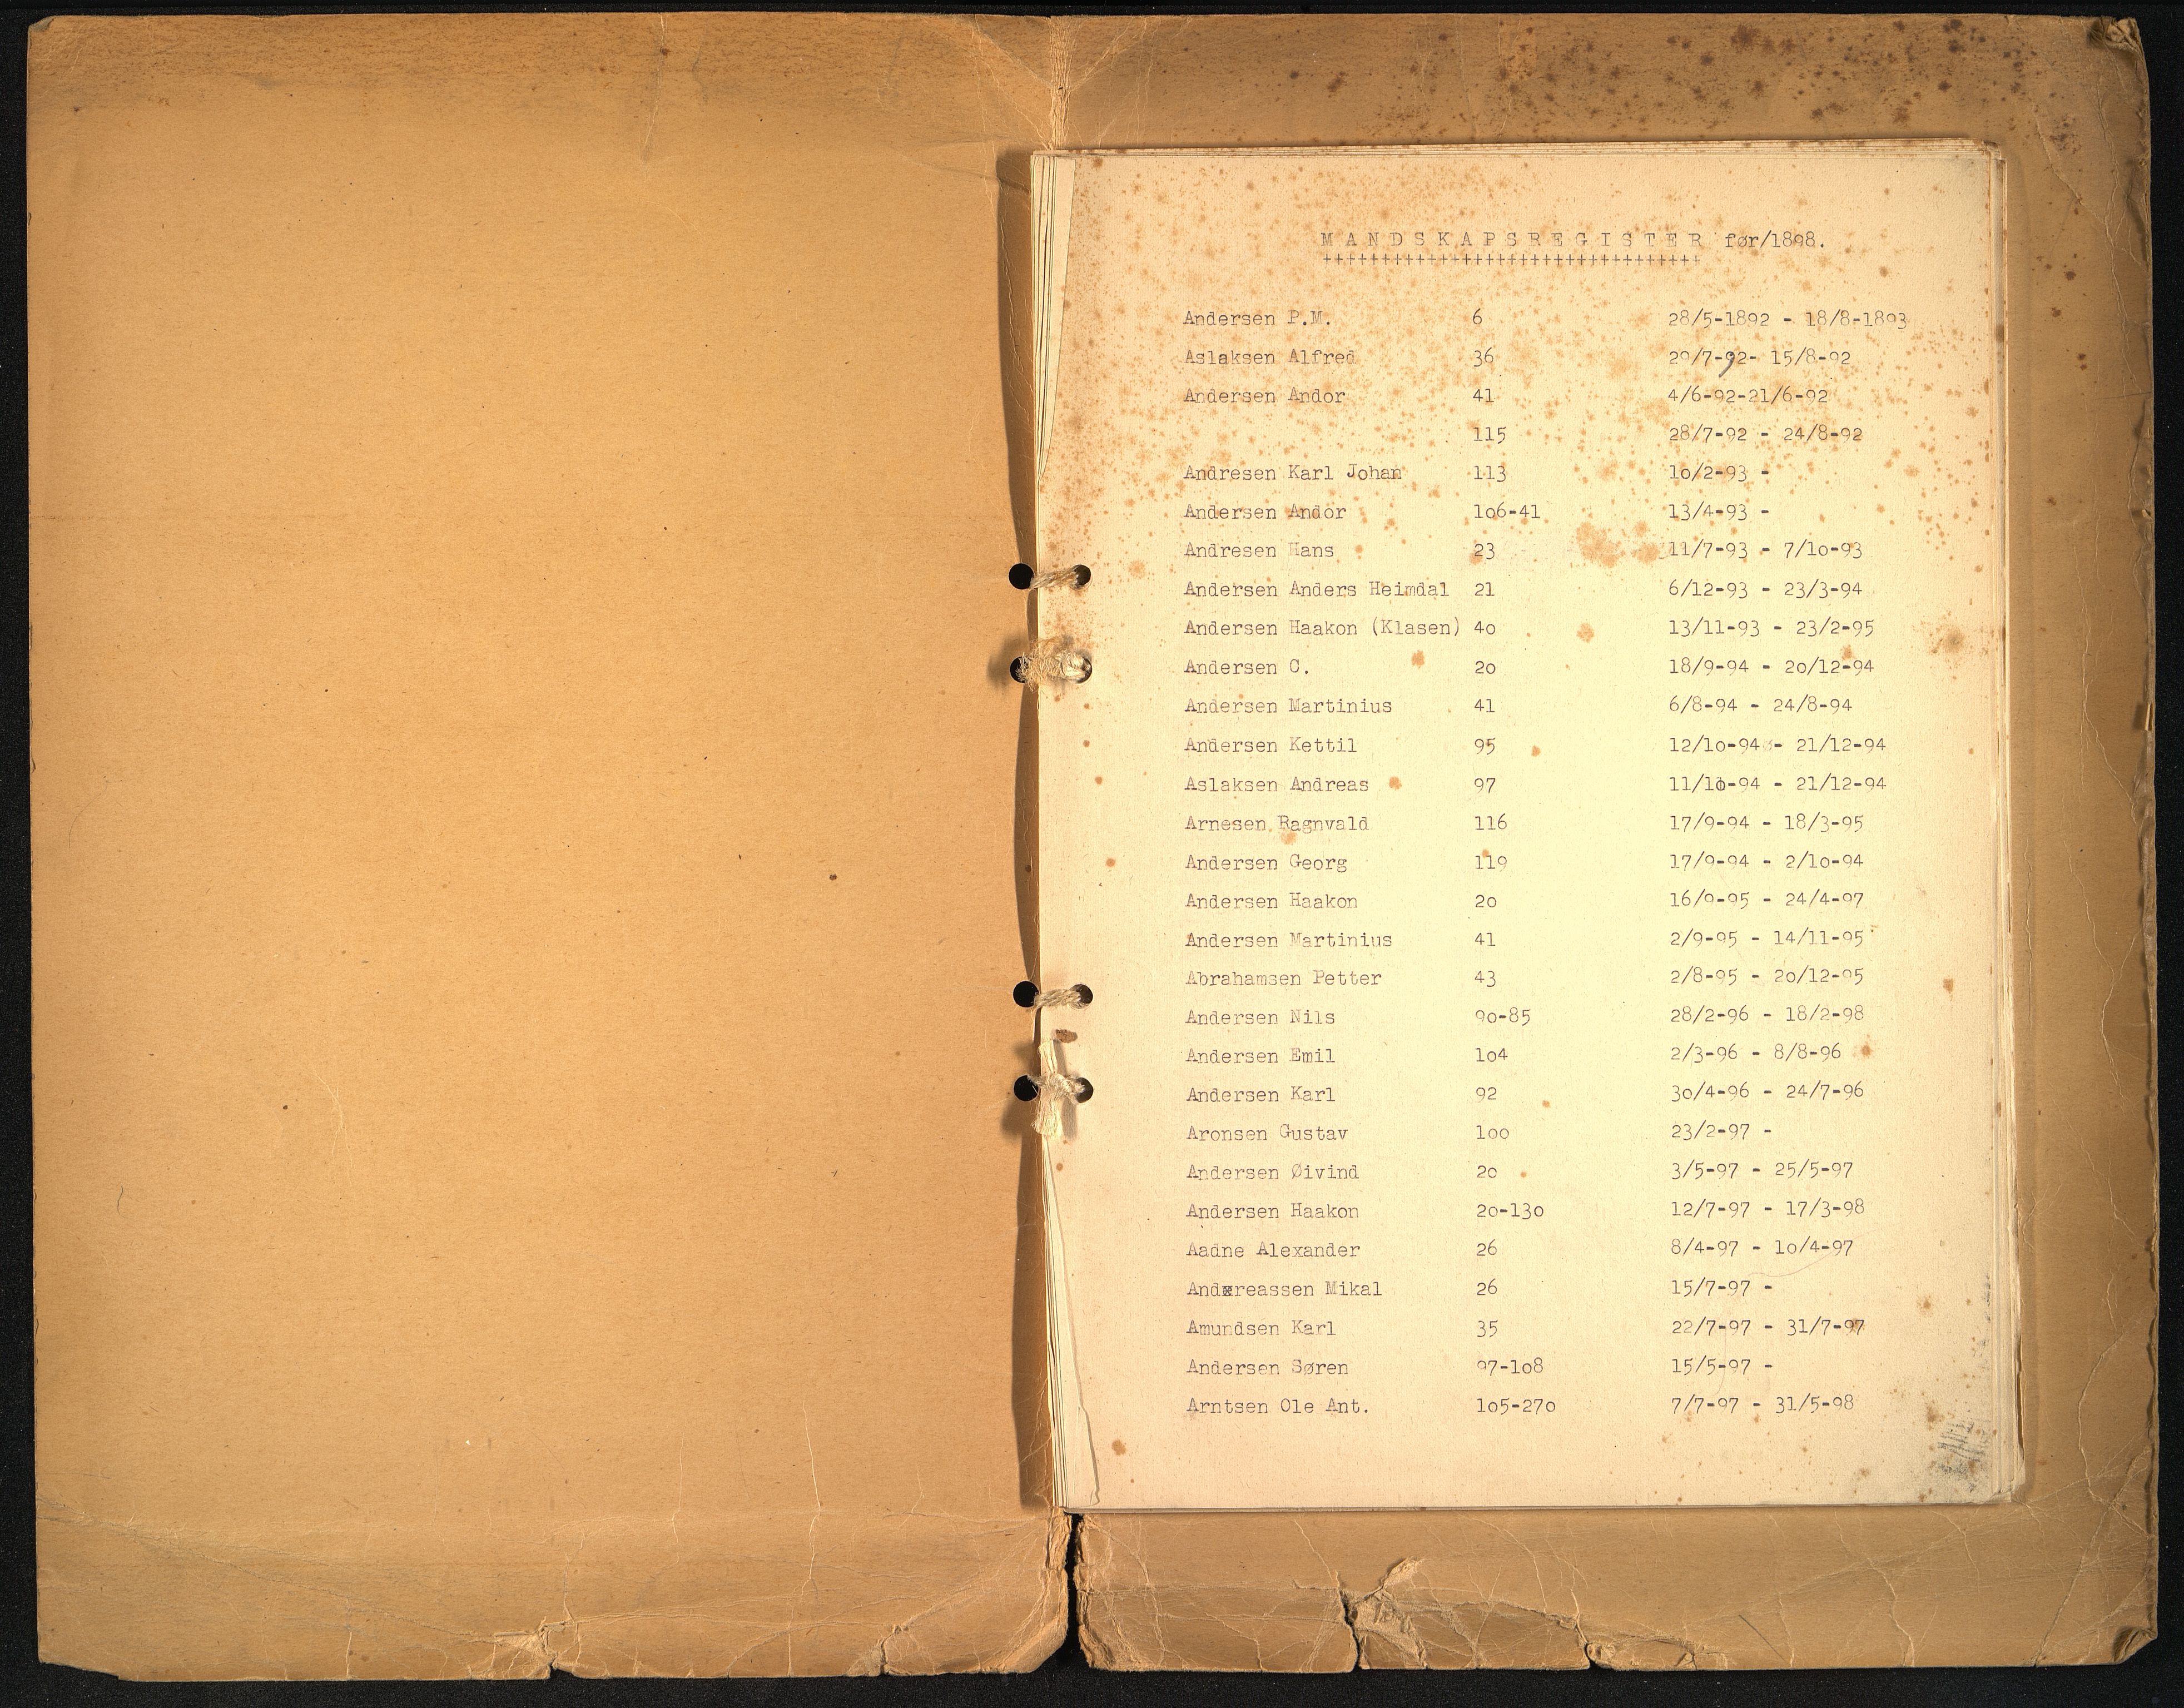 MANDSKAPSREGISTER før/1898.
++++++++++++++++++++++++++++++++
Andersen P.M. 6 28/5-1892 - 18/8-1893
Aslaksen Alfred 36 29/7-92- 15/8-92
Andersen Andor 41 4/6-92-21/6-92
115 28/7-92 - 24/8-92
Andresen Karl Johan 113 1o/2-93 -
Andersen Andor 1o6-41 13/4-93 -
Andresen Hans 23 11/7-93 - 7/1o-93
Andersen Anders Heimdal 21 6/12-93 - 23/3-94
Andersen Haakon (Klasen) 4o 13/11-93 - 23/2-95
Andersen C. 2o 18/9-94 - 2o/12-94
Andersen Martinius 41 6/8-94 - 24/8-94
Andersen Kettil 95 12/1o-94 - 21/12-94
Aslaksen Andreas 97 11/1o-94 - 21/12-94
Arnesen Ragnvald 116 17/9-94 - 18/3-95
Andersen Georg 119 17/9-94 - 2/1o-94
Andersen Haakon 2o 16/9-95 - 24/4-97
Andersen Martinius 41 2/9-95 - 14/11-95
Abrahamsen Petter 43 2/8-95 - 2o/12-95
Andersen Nils 9o-85 28/2-96 - 18/2-98
Andersen Emil 1o4 2/3-96 - 8/8-96
Andersen Karl 92 3o/4-96 - 24/7-96
Aronsen Gustav 1oo 23/2-97 -
Andersen Øivind 2o 3/5-97 - 25/5-97
Andersen Haakon 2o-13o 12/7-97 - 17/3-98
Aadne Alexander 26 8/4-97 - 1o/4-97
Andxreassen Mikal 26 15/7-97 -
Amundsen Karl 35 22/7-97 - 31/7-97
Andersen Søren 97-1o8 15/5-97 -
Arntsen Ole Ant. 1o5-27o 7/7-97 - 31/5-98